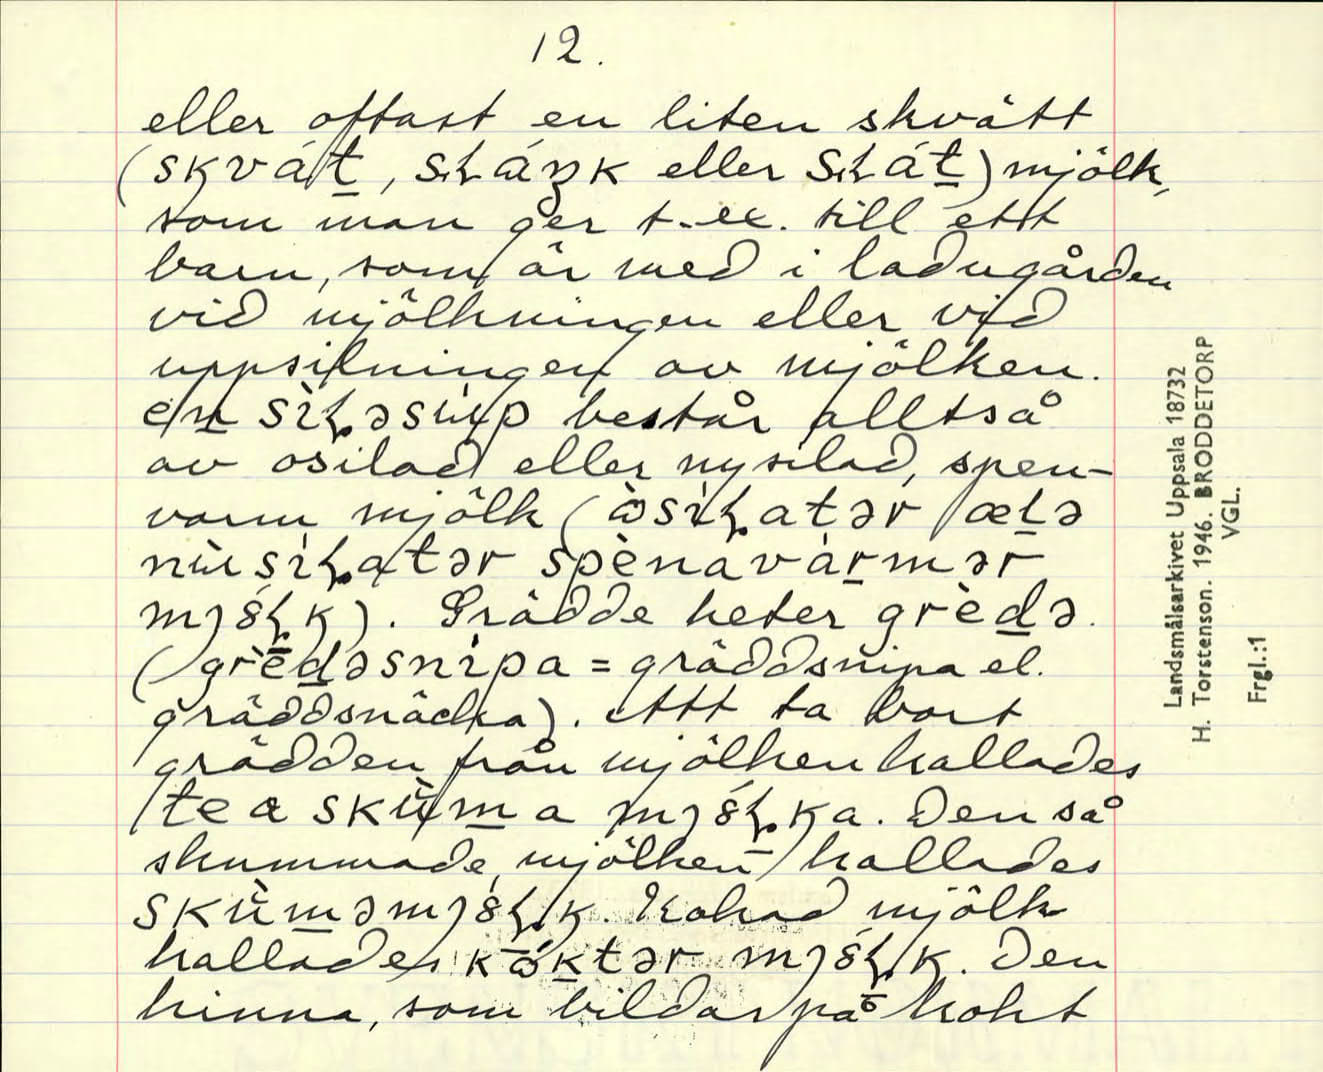 12.
eller oftast en liten skvätt
(skvát, slázk eller slát) mjölk,
som man ger t.ex. till ett
barn, som är med i ladugården
vid mjölkningen eller vid
uppsilningen av mjölken.
en sìɭəsùp består alltså
av osilad eller nysilad, spen-
varm mjölk (òsìɭatər ælə
nùsìɭatər spènavàrmər
mjǿɭk). Grädde heter grèdə.
(grèdəsnìpa = gräddsnipa el.
gräddsnäcka). Att ta bort
grädden från mjölken kallades
te a skùma mjǿɭka. Den så
skummade mjölken kallades
skùməmjǿɭk. Kokad mjölk
kallades kóktər mjǿɭk. Den
hinna, som bildas på kokt
Landsmålsarkivet Uppsala 18732
H. Torstenson. 1946. BRODDETORP
VGL.
Frgl.:1